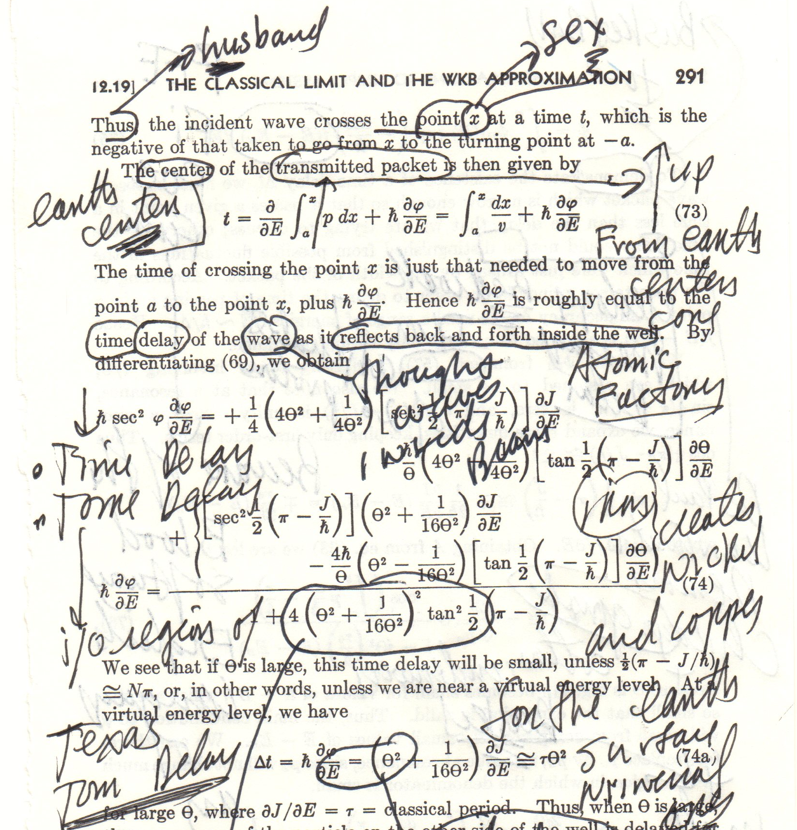 husband
sex
12.19] THE CLASSICAL LIMIT AND THE WKB APPROXIMATION 291
Thus the incident wave crosses the point x at a time t, which is the
negative of that taken to go from x to the turning point at −a.
The center of the transmitted packet is then given by
up
earths
center
t = ∂/∂E ∫ₐˣ p dx + ħ ∂φ/∂E = ∫ₐˣ dx/v + ħ ∂φ/∂E (73)
From earths
centers
core
The time of crossing the point x is just that needed to move from the
point a to the point x, plus ħ ∂φ/∂E. Hence ħ ∂φ/∂E is roughly equal to the
time delay of the wave as it reflects back and forth inside the well. By
differentiating (69), we obtain
Thought
waves
inside
Brains
Atomic
Factory
ħ sec² φ ∂φ/∂E = + 1/4 (4Θ² + 1/4Θ²) [sec² 1/2 (π − J/ħ)] ∂J/∂E
ħ/Θ (4Θ² 1/4Θ²) [tan 1/2 (π − J/ħ)] ∂Θ/∂E
Time Delay
Tome Delay
Thus
creates
nickel
and copper
ħ ∂φ/∂E = { [sec² 1/2 (π − J/ħ)] (Θ² + 1/16Θ²) ∂J/∂E
− 4ħ/Θ (Θ² − 1/16Θ²) [tan 1/2 (π − J/ħ)] ∂Θ/∂E }
1 + 4 (Θ² + 1/16Θ²)² tan² 1/2 (π − J/ħ) (74)
i/o region of
We see that if Θ is large, this time delay will be small, unless ½(π − J/ħ)
≅ Nπ, or, in other words, unless we are near a virtual energy level. At a
virtual energy level, we have
for the earths
surface
mineral
Texas
Tom Delay
Δt = ħ ∂φ/∂E = (Θ² + 1/16Θ²) ∂J/∂E ≅ τΘ² (74a)
for large Θ, where ∂J/∂E = τ = classical period. Thus, when Θ is large,